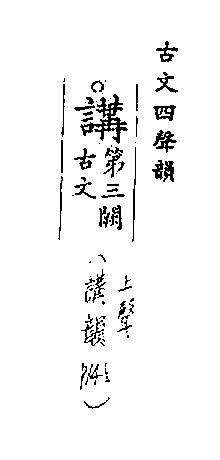 古文四聲韻
○講
第三闕
古文
上聲
(講韻
)